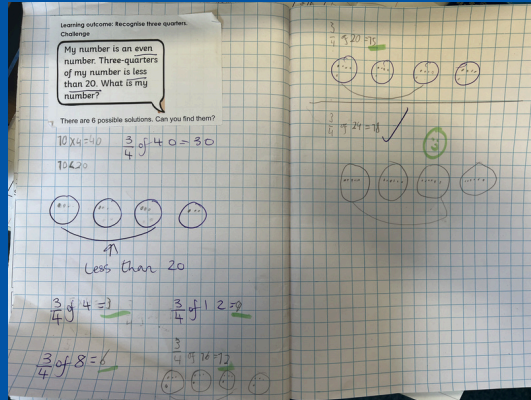 Learning outcome: Recognise three quarters.
Challenge
My number is an even
number. Three-quarters
of my number is less
than 20. What is my
number?
There are 6 possible solutions. Can you find them?
10x4=40
3/4 of 40=30
Less than 20
3/4 of 4=3
3/4 of 12=9
3/4 of 8=6
3/4 of 16=12
3/4 of 20=15
3/4 of 24=18